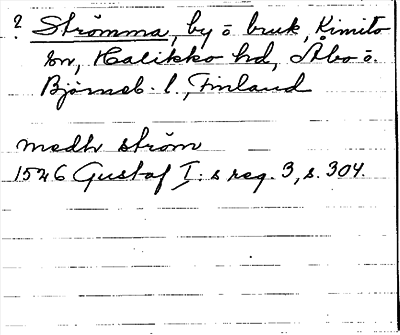 ? Strömma, by o bruk, Kimito
sn, Halikko hd, Åbo o.
Björneb. l., Finland
medh ström
1526 Gustaf I:s reg. 3, s. 304.